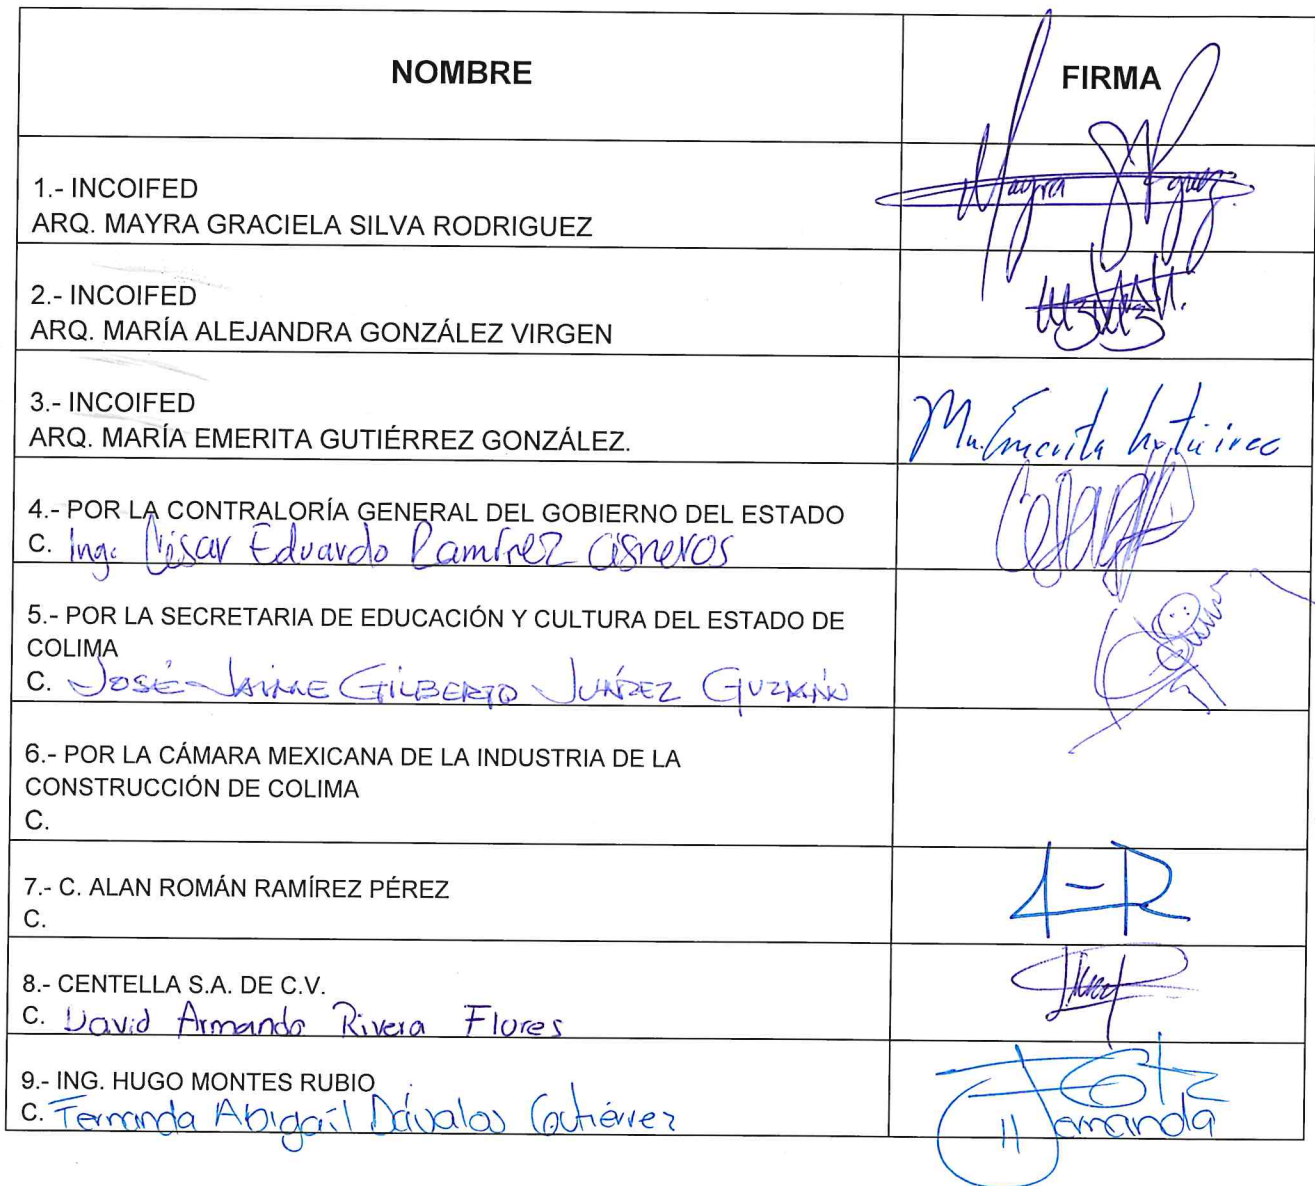 NOMBRE
FIRMA
1.- INCOIFED
ARQ. MAYRA GRACIELA SILVA RODRIGUEZ
Mayra
2.- INCOIFED
ARQ. MARÍA ALEJANDRA GONZÁLEZ VIRGEN
3.- INCOIFED
ARQ. MARÍA EMERITA GUTIÉRREZ GONZÁLEZ.
Ma. Emerita
4.- POR LA CONTRALORÍA GENERAL DEL GOBIERNO DEL ESTADO
C. Ing. César Eduardo Ramírez Cisneros
5.- POR LA SECRETARIA DE EDUCACIÓN Y CULTURA DEL ESTADO DE
COLIMA
C. JOSÉ JAIME GILBERTO JUÁREZ GUZMÁN
6.- POR LA CÁMARA MEXICANA DE LA INDUSTRIA DE LA
CONSTRUCCIÓN DE COLIMA
C.
7.- C. ALAN ROMÁN RAMÍREZ PÉREZ
C.
8.- CENTELLA S.A. DE C.V.
C. David Armando Rivera Flores
9.- ING. HUGO MONTES RUBIO
C. Fernanda Abigaíl Dávalos Gutiérrez
Fernanda